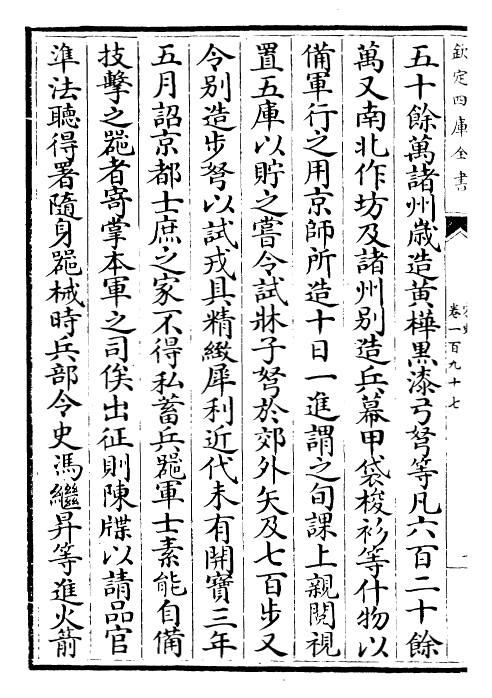 欽定四庫全書
卷一百九十七
五十餘萬諸州歳造黄樺黒漆弓弩等凡六百二十餘
萬又南北作坊及諸州别造兵幕甲袋梭衫等什物以
備軍行之用京師所造十日一進謂之旬課上親閲視
置五庫以貯之嘗令試牀子弩於郊外矢及七百步又
令别造步弩以試戎具精緻犀利近代未有開寳三年
五月詔京都士庶之家不得私蓄兵器軍士素能自備
技擊之器者寄掌本軍之司俟出征則陳牒以請品官
準法聽得署隨身器械時兵部令史馮繼昇等進火箭